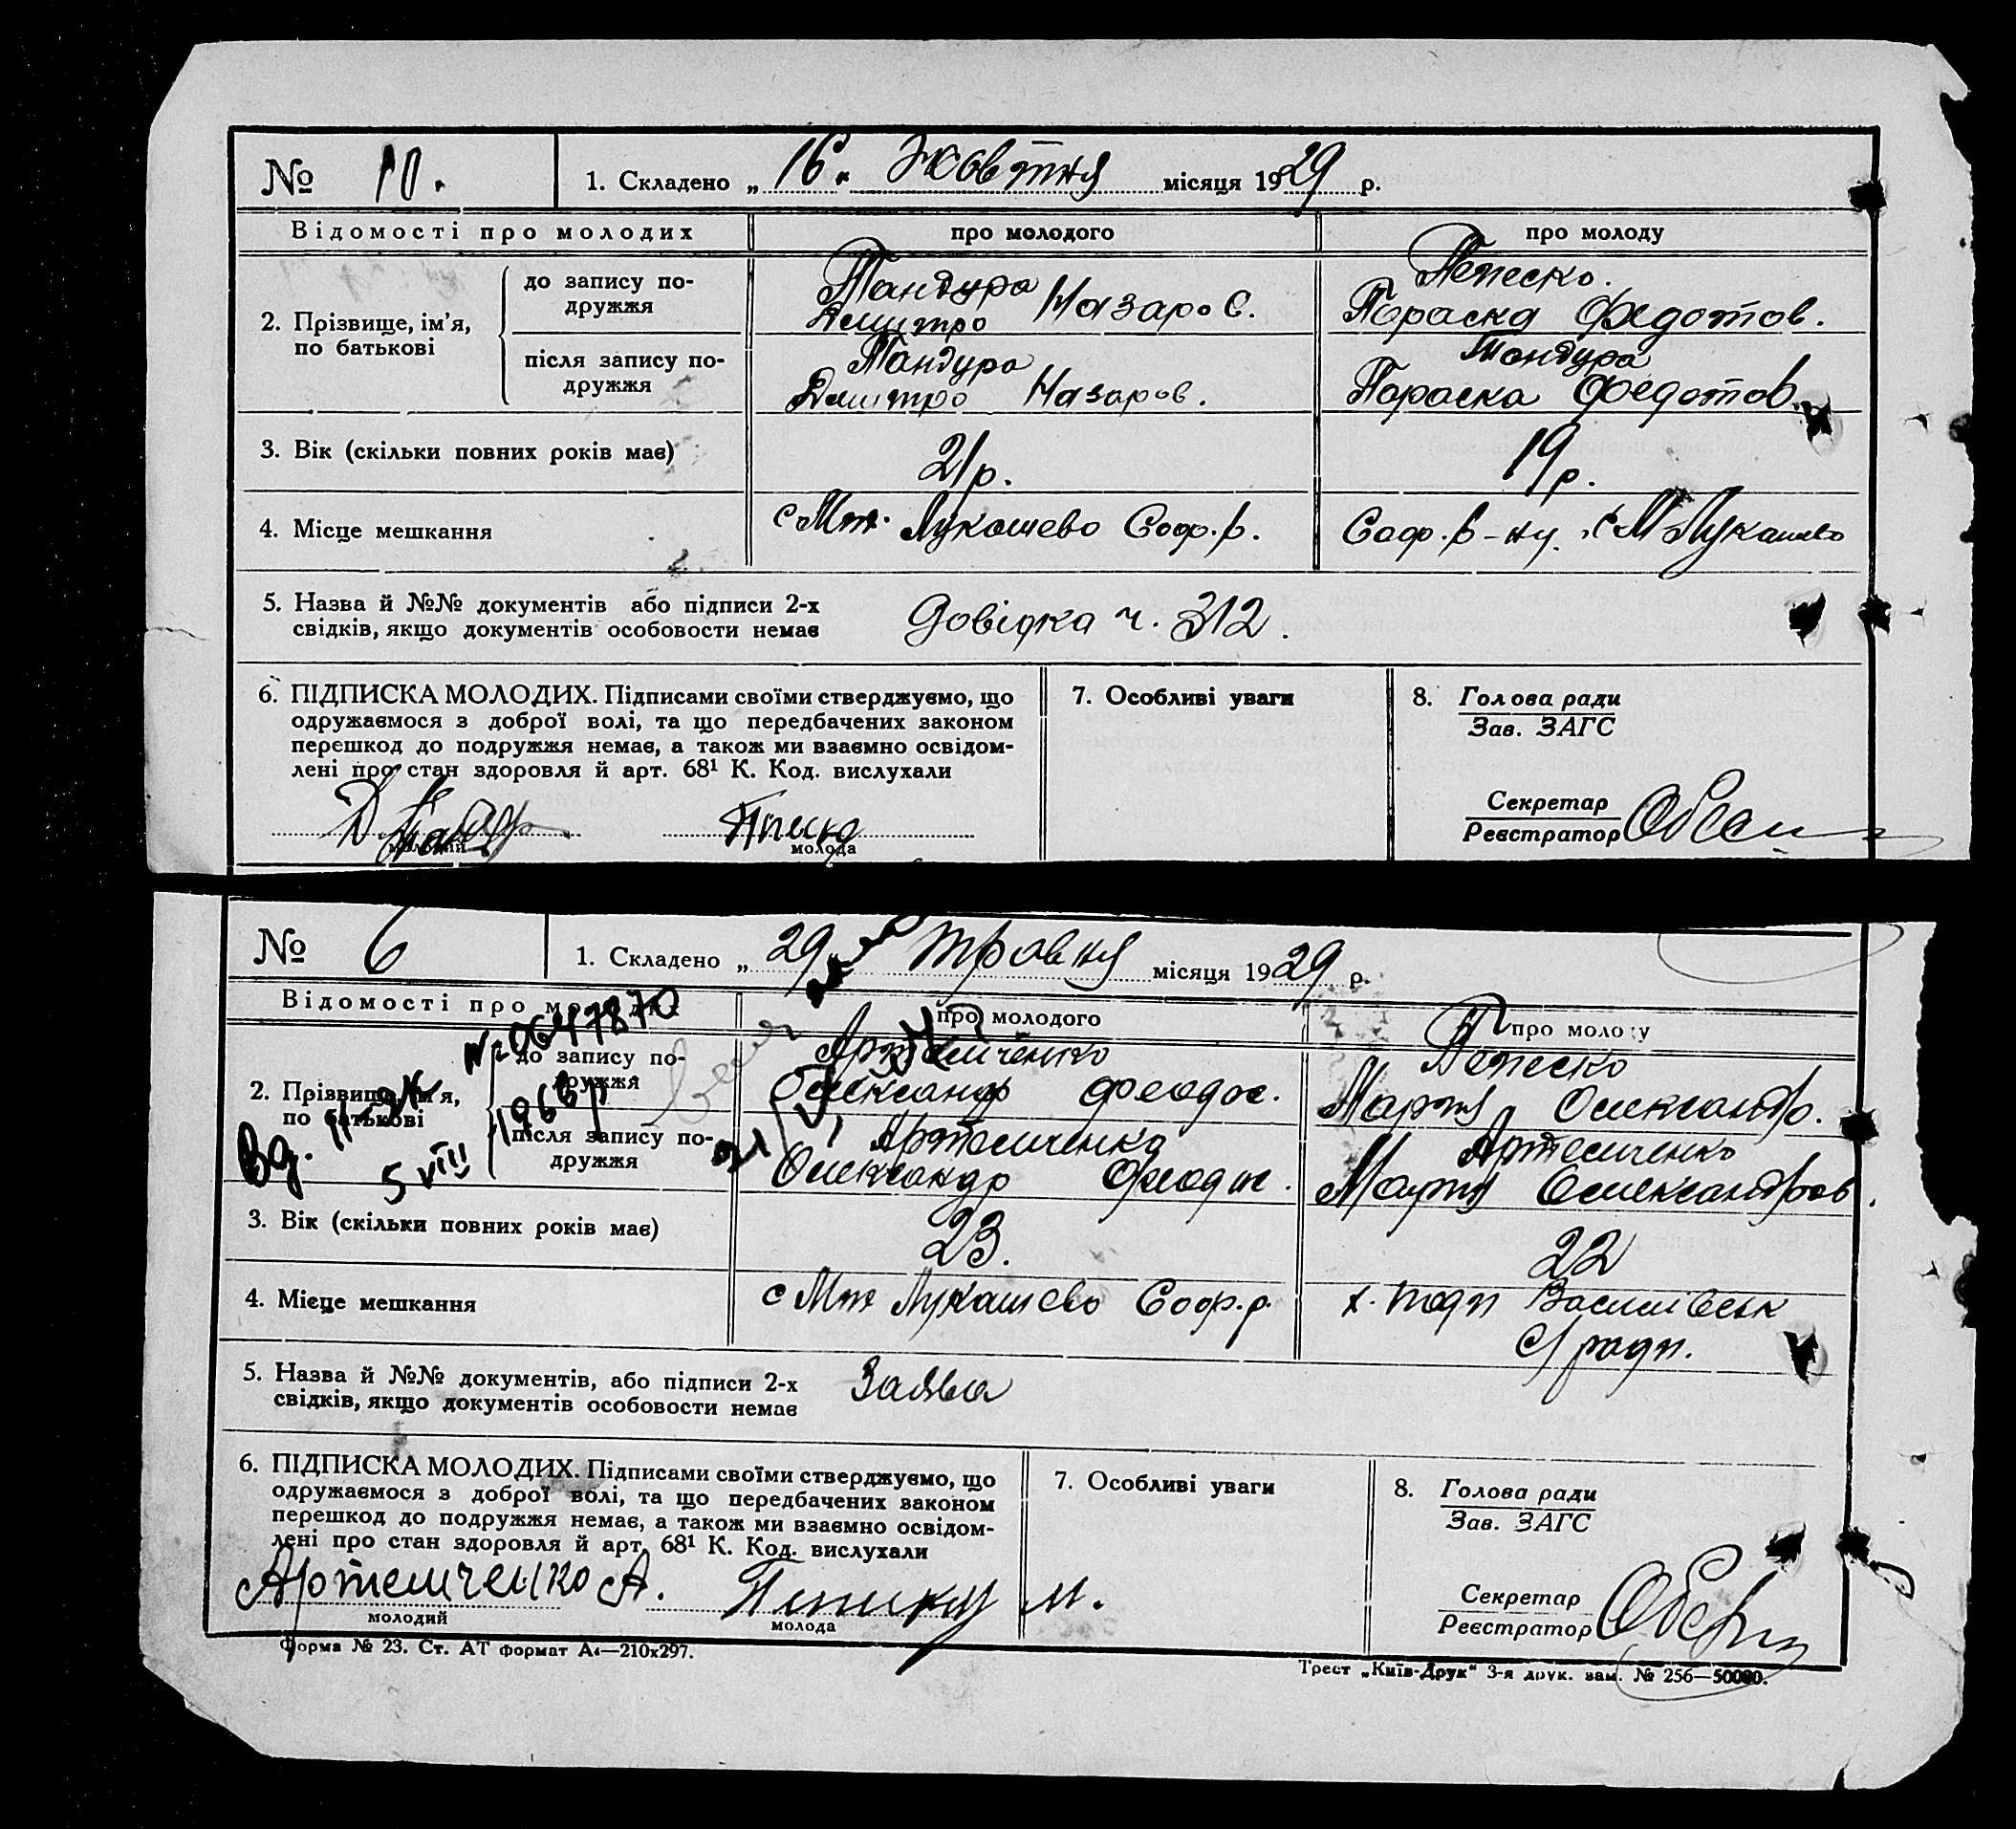 № 10. 1. Складено „ 16. Жовтня місяця 1929 р.
Відомості про молодих про молодого про молоду
2. Прізвище, ім'я, по батькові
до запису подружжя
Тандура Дмитро Назаров.
Пепеско. Параска Федотов.
після запису подружжя
Тандура Дмитро Назаров.
Тандура Параска Федотов.
3. Вік (скільки повних років має) 21 р. 19 р.
4. Місце мешкання с Мт. Лукашево Соф. р. Соф. р-ну. с М Лукашево
5. Назва й №№ документів або підписи 2-х
свідків, якщо документів особовости немає
Довідка ч. 312.
6. ПІДПИСКА МОЛОДИХ. Підписами своїми стверджуємо, що
одружаємося з доброї волі, та що передбачених законом
перешкод до подружжя немає, а також ми взаємно освідом-
лені про стан здоровля й арт. 68¹ К. Код. вислухали
молодий молода
7. Особливі уваги
8. Голова ради
Зав. ЗАГС
Секретар
Реєстратор
№ 6 1. Складено „ 29 травня місяця 1929 р.
Відомості про молодих про молодого про молоду
№ 0647870
2. Прізвище, ім'я, по батькові
до запису подружжя
Артемченко
Олександр Феодос.
Пепеско
Марія Олександр.
5 VIII 1966 р
після запису подружжя
Артемченко
Олександр Феодос.
Артемченко
Марія Олександров.
3. Вік (скільки повних років має) 23. 22
4. Місце мешкання с Мт Лукашево Соф. р. х. Василівськ
с/ради.
5. Назва й №№ документів, або підписи 2-х
свідків, якщо документів особовости немає
Заява
6. ПІДПИСКА МОЛОДИХ. Підписами своїми стверджуємо, що
одружаємося з доброї волі, та що передбачених законом
перешкод до подружжя немає, а також ми взаємно освідом-
лені про стан здоровля й арт. 68¹ К. Код. вислухали
Артемченко А. М.
молодий молода
7. Особливі уваги
8. Голова ради
Зав. ЗАГС
Секретар
Реєстратор
Форма № 23. Ст. АТ формат А₄—210х297.
Трест „Київ-Друк“ 3-я друк. зам. № 256—50000.